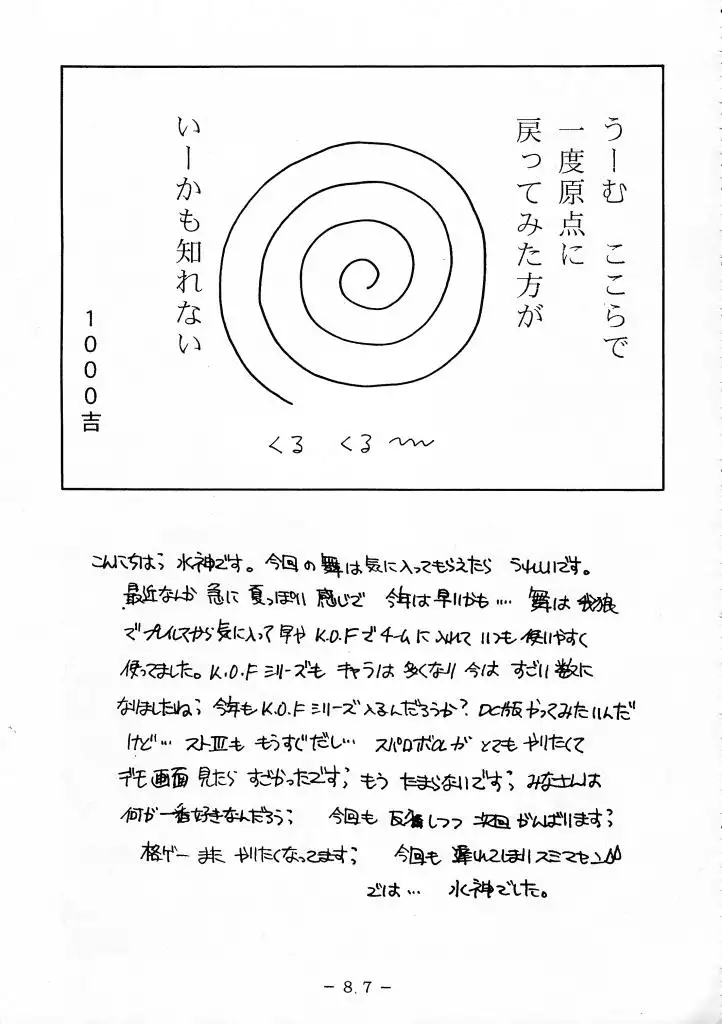 うーむ ここらで
一度原点に
戻ってみた方が
いーかも知れない
1000吉
くる くる〜
こんにちはっ 水神です。今回の舞は気に入ってもらえたら うれしいです。
最近なんか 急に 夏っぽい 感じで 今年は早いかも… 舞は 餓狼
でプレイしてから気に入って 早や K.O.Fでチームに入れて いつも 使いやすく
使ってました。K.O.Fシリーズも キャラは 多くなり 今は すごい数に
なりましたね; 今年もK.O.Fシリーズ入るんだろうか? DC版やってみたいんだ
けど… ストⅢも もうすぐだし… スパロボαが とても やりたくて
デモ画面 見たら すごかったです; もう たまらないです; みなさんは
何が一番好きなんだろう; 今回も 反省しつつ 次回 がんばります;
格ゲー また やりたくなってます; 今回も 遅れてしまい スミマセン
では… 水神でした。
− 8.7 −